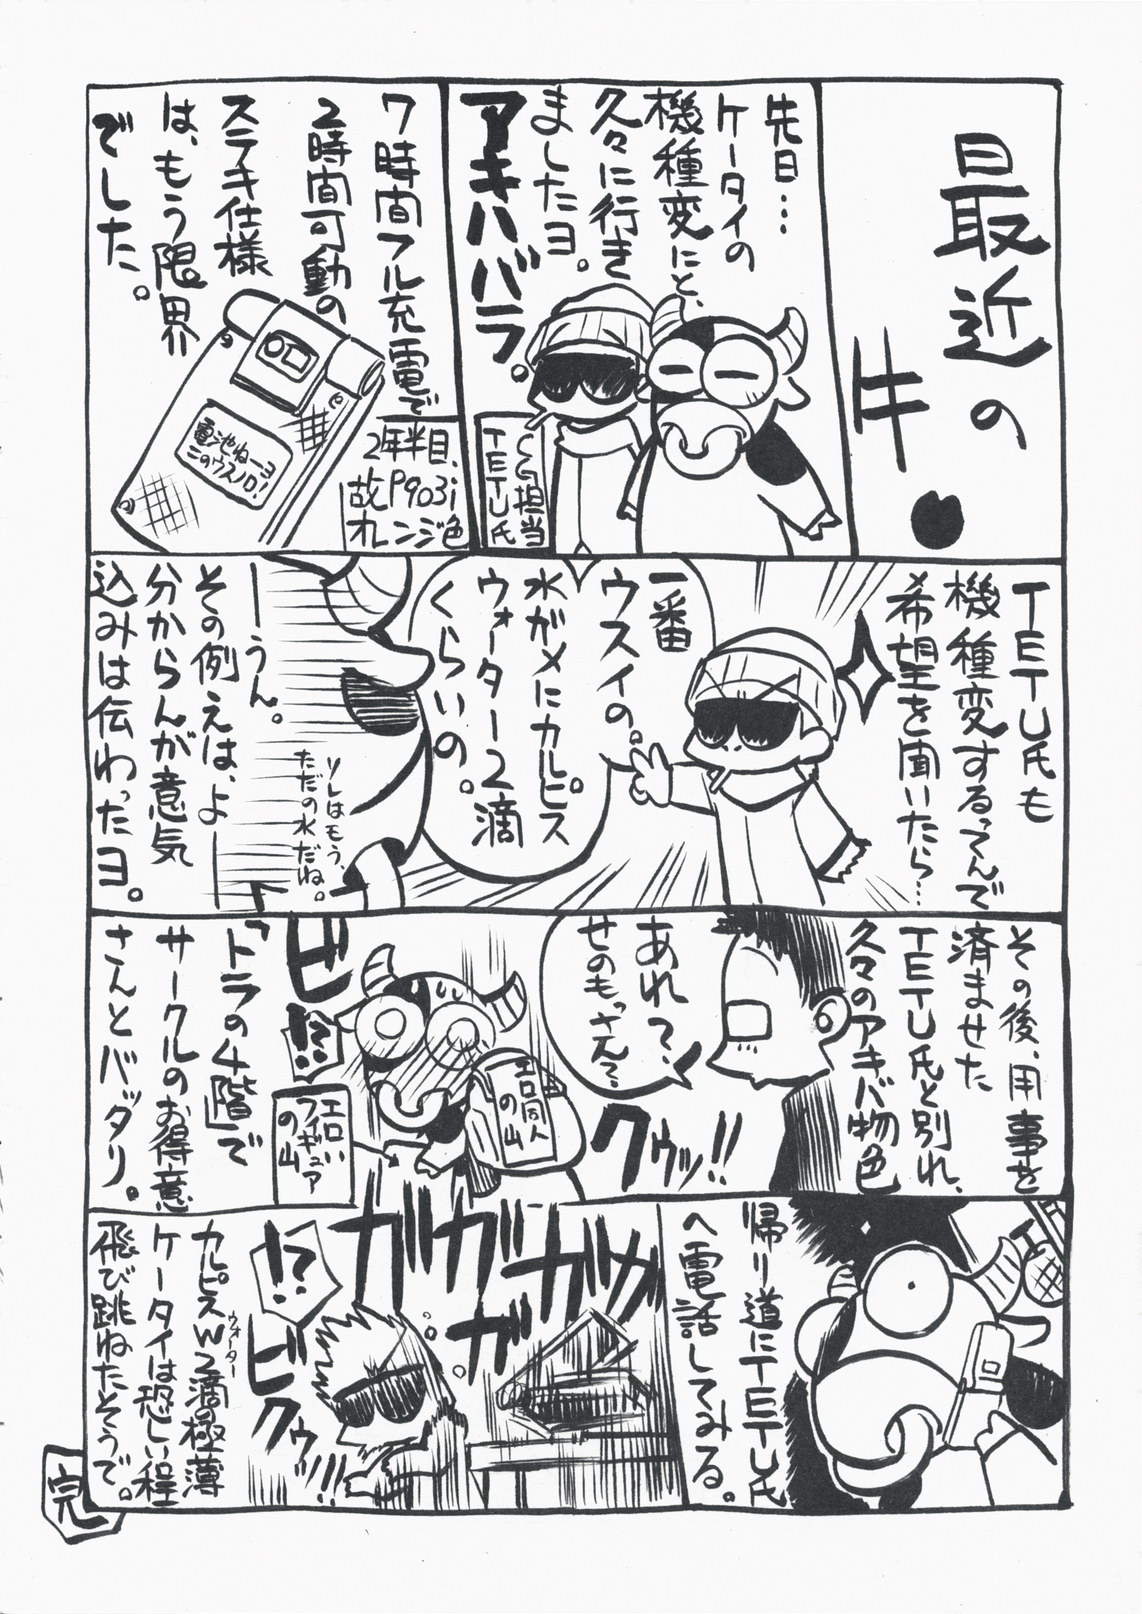 最近の
牛。
先日…
ケータイの
機種変にと、
久々に行き
ましたヨ。
アキハバラ。
CG担当
TETU氏
7時間フル充電で
2時間可動の
ステキ仕様
は、もう限界
でした。
電池ねーヨ
このウスノロ!
2年半目、
P903i
故オレンジ色
TETU氏も
機種変するってんで
希望を聞いたら…
一番
ウスイの。
水がメにカルピス
ウォーター2滴
くらいの。
ソレはもう、
ただの水だね。
うーん。
その例えは、よー
分からんが意気
込みは伝わったヨ。
その後、用事を
済ませた
TETU氏と別れ、
久々のアキバ物色
あれ?
せのもっさん?
クゥッ!!
ビ
!?
エロ同人
の山
エロい
フィギュア
の山
「トラの4階」で
サークルのお得意
さんとバッタリ。
帰り道にTETU氏
へ電話してみる。
ガガガガガ
!?
ビクゥッ!!
カルピスW2滴の極薄
ウォーター
ケータイは恐しい程
飛び跳ねたそうで。
完